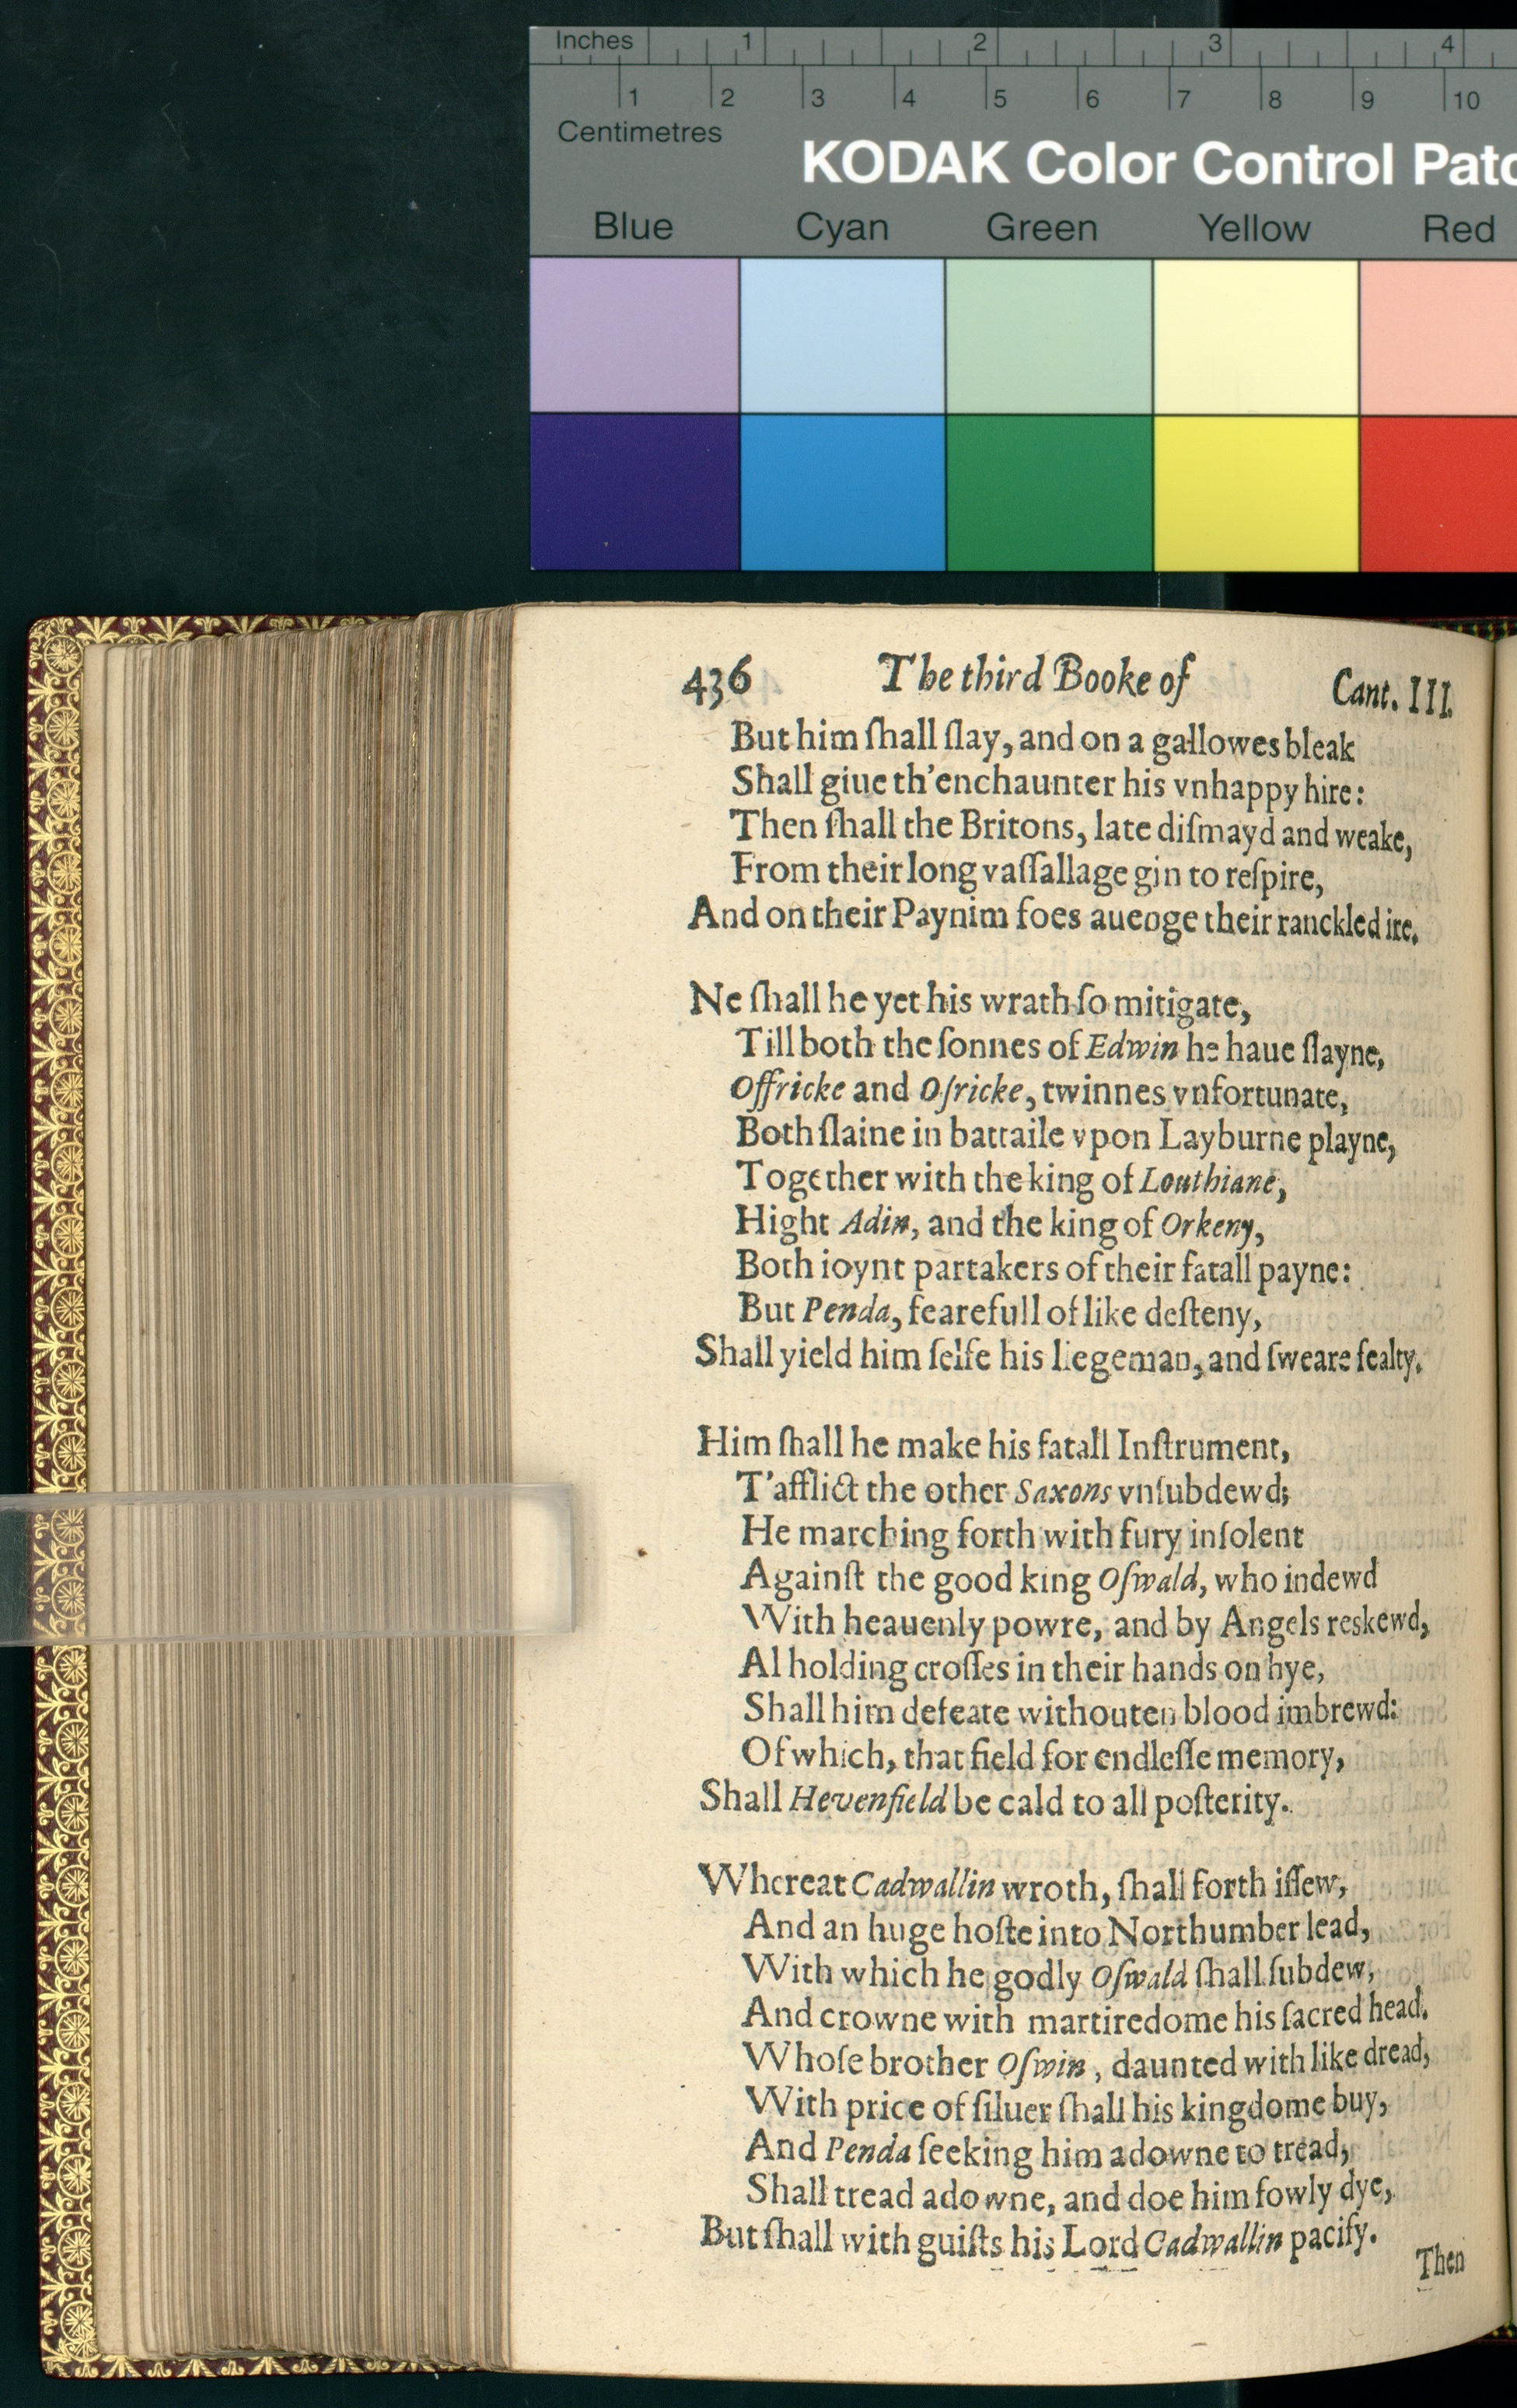 Inches 1 2 3 4
1 2 3 4 5 6 7 8 9 10
Centimetres
KODAK Color Control Patc
Blue Cyan Green Yellow Red
436 The third Booke of Cant. III.
But him ſhall ſlay, and on a gallowes bleak
Shall giue th'enchaunter his vnhappy hire:
Then ſhall the Britons, late diſmayd and weake,
From their long vaſſallage gin to reſpire,
And on their Paynim foes auenge their ranckled ire.
Ne ſhall he yet his wrath ſo mitigate,
Till both the ſonnes of Edwin he haue ſlayne,
Offricke and Oſricke, twinnes vnfortunate,
Both ſlaine in battaile vpon Layburne playne,
Together with the king of Louthiane,
Hight Adin, and the king of Orkeny,
Both ioynt partakers of their fatall payne:
But Penda, fearefull of like deſteny,
Shall yield him ſelfe his liegeman, and ſweare fealty.
Him ſhall he make his fatall Inſtrument,
T'afflict the other Saxons vnſubdewd;
He marching forth with fury inſolent
Againſt the good king Oſwald, who indewd
With heauenly powre, and by Angels reskewd,
Al holding croſſes in their hands on hye,
Shall him defeate withouten blood imbrewd:
Of which, that field for endleſſe memory,
Shall Hevenfield be cald to all poſterity.
Whereat Cadwallin wroth, ſhall forth iſſew,
And an huge hoſte into Northumber lead,
With which he godly Oſwald ſhall ſubdew,
And crowne with martiredome his ſacred head.
Whoſe brother Oſwin, daunted with like dread,
With price of ſiluer ſhall his kingdome buy,
And Penda ſeeking him adowne to tread,
Shall tread adowne, and doe him fowly dye,
But ſhall with guifts his Lord Cadwallin pacify.
Then